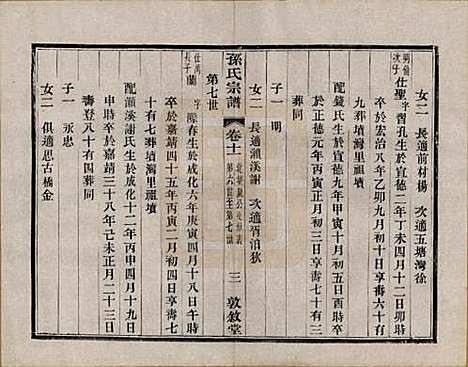 女二 長適前村楊 次適五塘灣徐
仕聖 字習孔生於宣德二年丁未四月十二日卯時
卒於宏治八年乙卯九月初十日享壽六十有
九葬墳灣里祖墳
配鏡氏生於宣德九年甲寅十月初五日酉時卒
於正德元年丙寅正月初三日享壽七十有三
葬同
子一 明
女二 長適灝溪謝 次適
孫氏宗譜 卷十一 第六世至第七世 三 敦敘堂
第七世
仕禹長子 蘭 字陳春生於成化六年庚寅四月十八日午時
卒於嘉靖四十五年丙寅二月初四日享壽七
十有七葬墳灣里祖墳
配灝溪謝氏生於成化十二年丙申四月十九日
申時卒於嘉靖三十八年己未正月二十三日
壽登八十有四葬同
子一 永忠
女二 俱適思古橋金